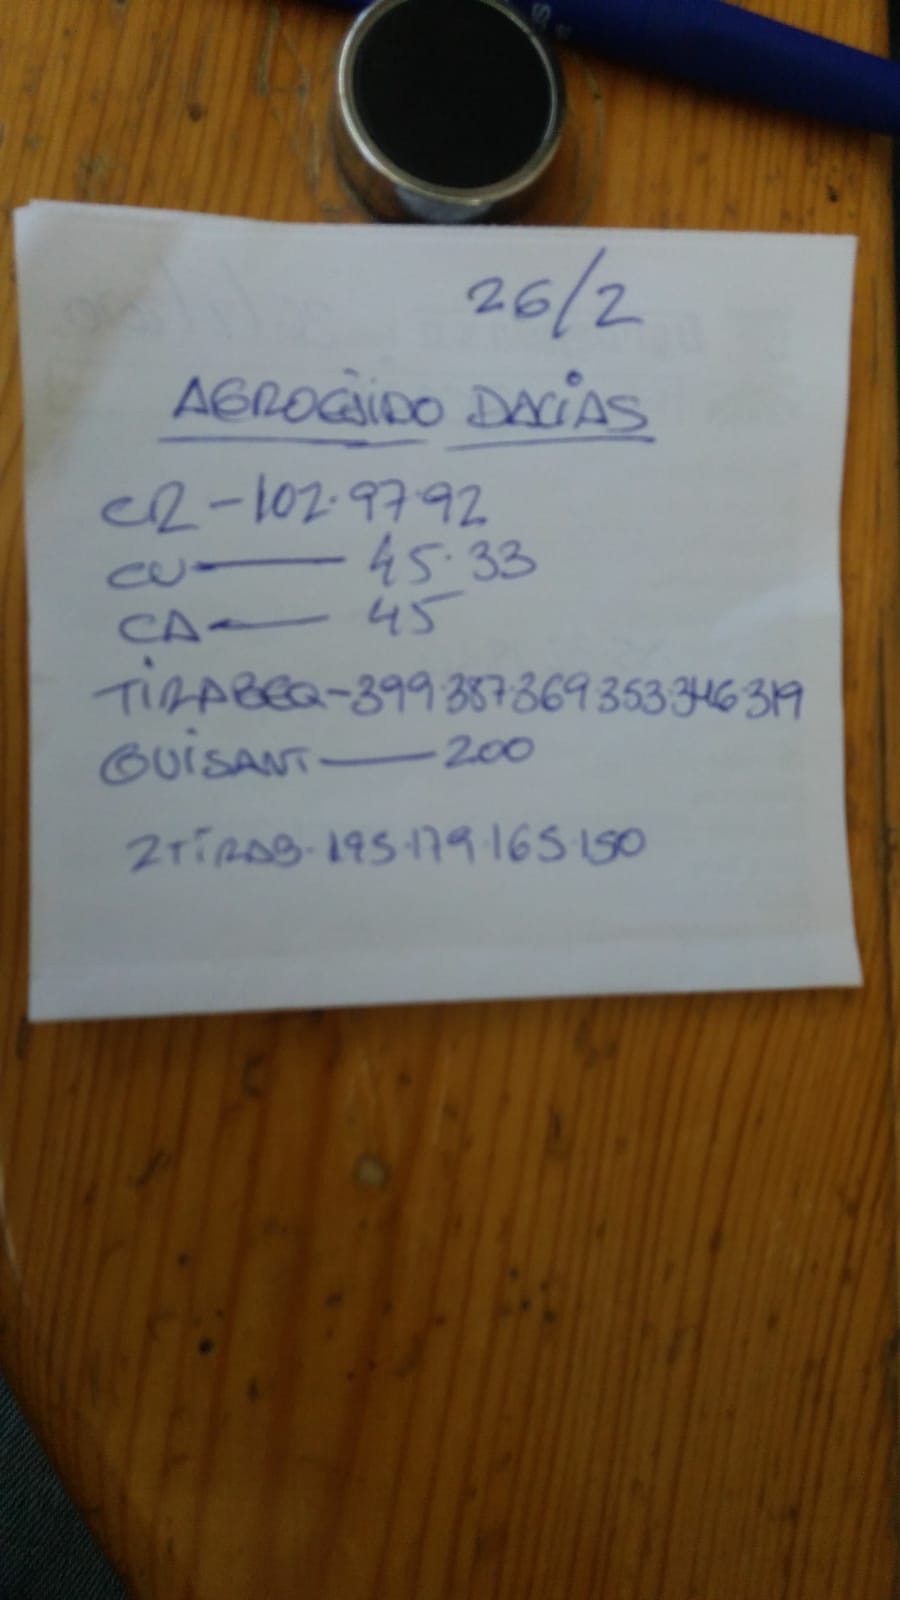 26/2
AGROEJIDO DALIAS
CR - 102·97·92
CU — 45·33
CA — 45
TIRABEQ - 399·387·369·353·346·319
GUISANT — 200
2TIRAB · 195·179·165·150